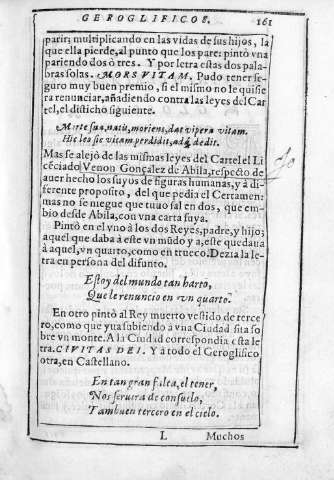 GEROGLIFICOS. 161
parir; multiplicando en las vidas de sus hijos, la
que ella pierde, al punto que los pare: pintò vna
pariendo dos ò tres. Y por letra estas dos pala-
bras solas. MORS VITAM. Pudo tener se-
guro muy buen premio, si el mismo no le quisie
ra renunciar, añadiendo contra las leyes del Car
tel, el disticho siguiente.
Morte sua, natis, moriens, dat vipera vitam.
Hic leo sic vitam perdidit, atq; dedit.
Mas se alejò de las mismas leyes del Cartel el Li
cẽciado Venon Gonçalez de Abila, respeto de
auer hecho los suyos de figuras humanas, y à di-
ferente proposito, del que pedia el Certamen:
mas no se niegue que tuuo sal en dos, que em-
bio desde Abila, con vna carta suya.
Pintò en el vno à los dos Reyes, padre, y hijo;
aquel que daba à este vn mũdo y a, este quedaua
à aquel, vn quarto, como en trueco. Dezia la le-
tra en persona del difunto.
Estoy del mundo tan harto,
Que le renuncio en vn quarto.
En otro pintò al Rey muerto vestido de terce
ro, como que yua subiendo à vna Ciudad sita so
bre vn monte. A la Ciudad correspondia esta le
tra. CIVITAS DEI. Y à todo el Geroglifico
otra, en Castellano.
En tan gran falta, el tener,
Nos seruira de consuelo,
Tambien tercero en el cielo.
L Muchos